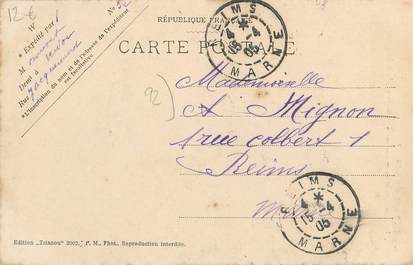 12 €
RÉPUBLIQUE FRANÇAISE
CARTE POSTALE
N°
* Expédié par
M
Demt à
Rue
* L'inscription du nom et de l'adresse de l'expéditeur
est facultative
REIMS
4 *
15 -4
05
MARNE
92
Mademoiselle
A Mignon
1 rue Colbert 1
Reims
REIMS
4 *
15 -4
05
MARNE
Edition „Trianon" P. M., Phot., Reproduction interdite.